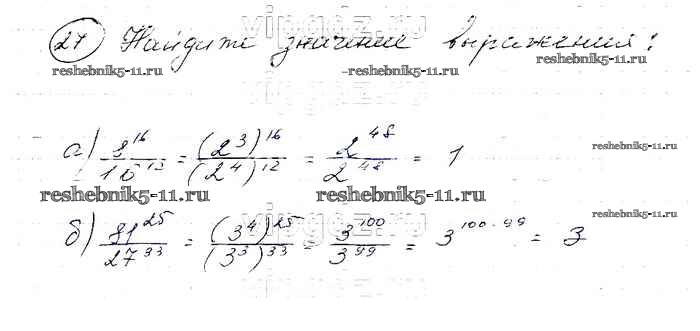 27 Найдите значение выражения:
reshebnik5-11.ru -reshebnik5-11.ru reshebnik5-11.ru
а) 8^16/16^13 = (2^3)^16/(2^4)^12 = 2^48/2^48 = 1
reshebnik5-11.ru
reshebnik5-11.ru reshebnik5-11.ru
vipgdz.ru
б) 81^25/27^33 = (3^4)^25/(3^3)^33 = 3^100/3^99 = 3^100-99 = 3
reshebnik5-11.ru